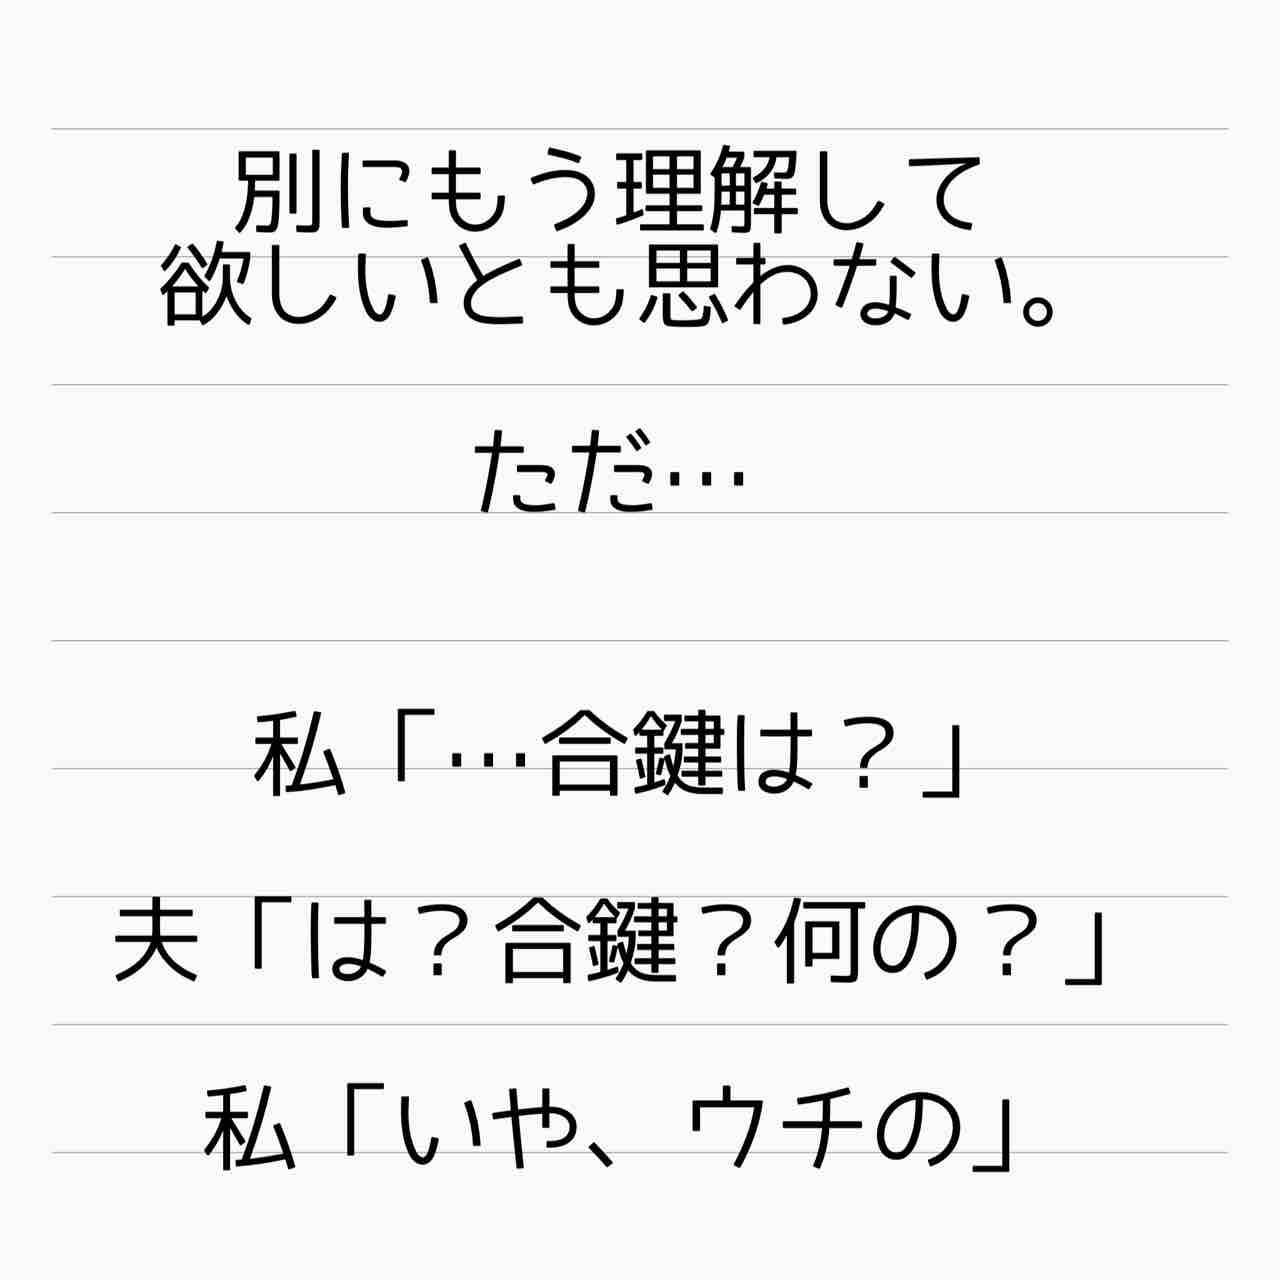 別にもう理解して
欲しいとも思わない。
ただ…
私「…合鍵は？」
夫「は？合鍵？何の？」
私「いや、ウチの」